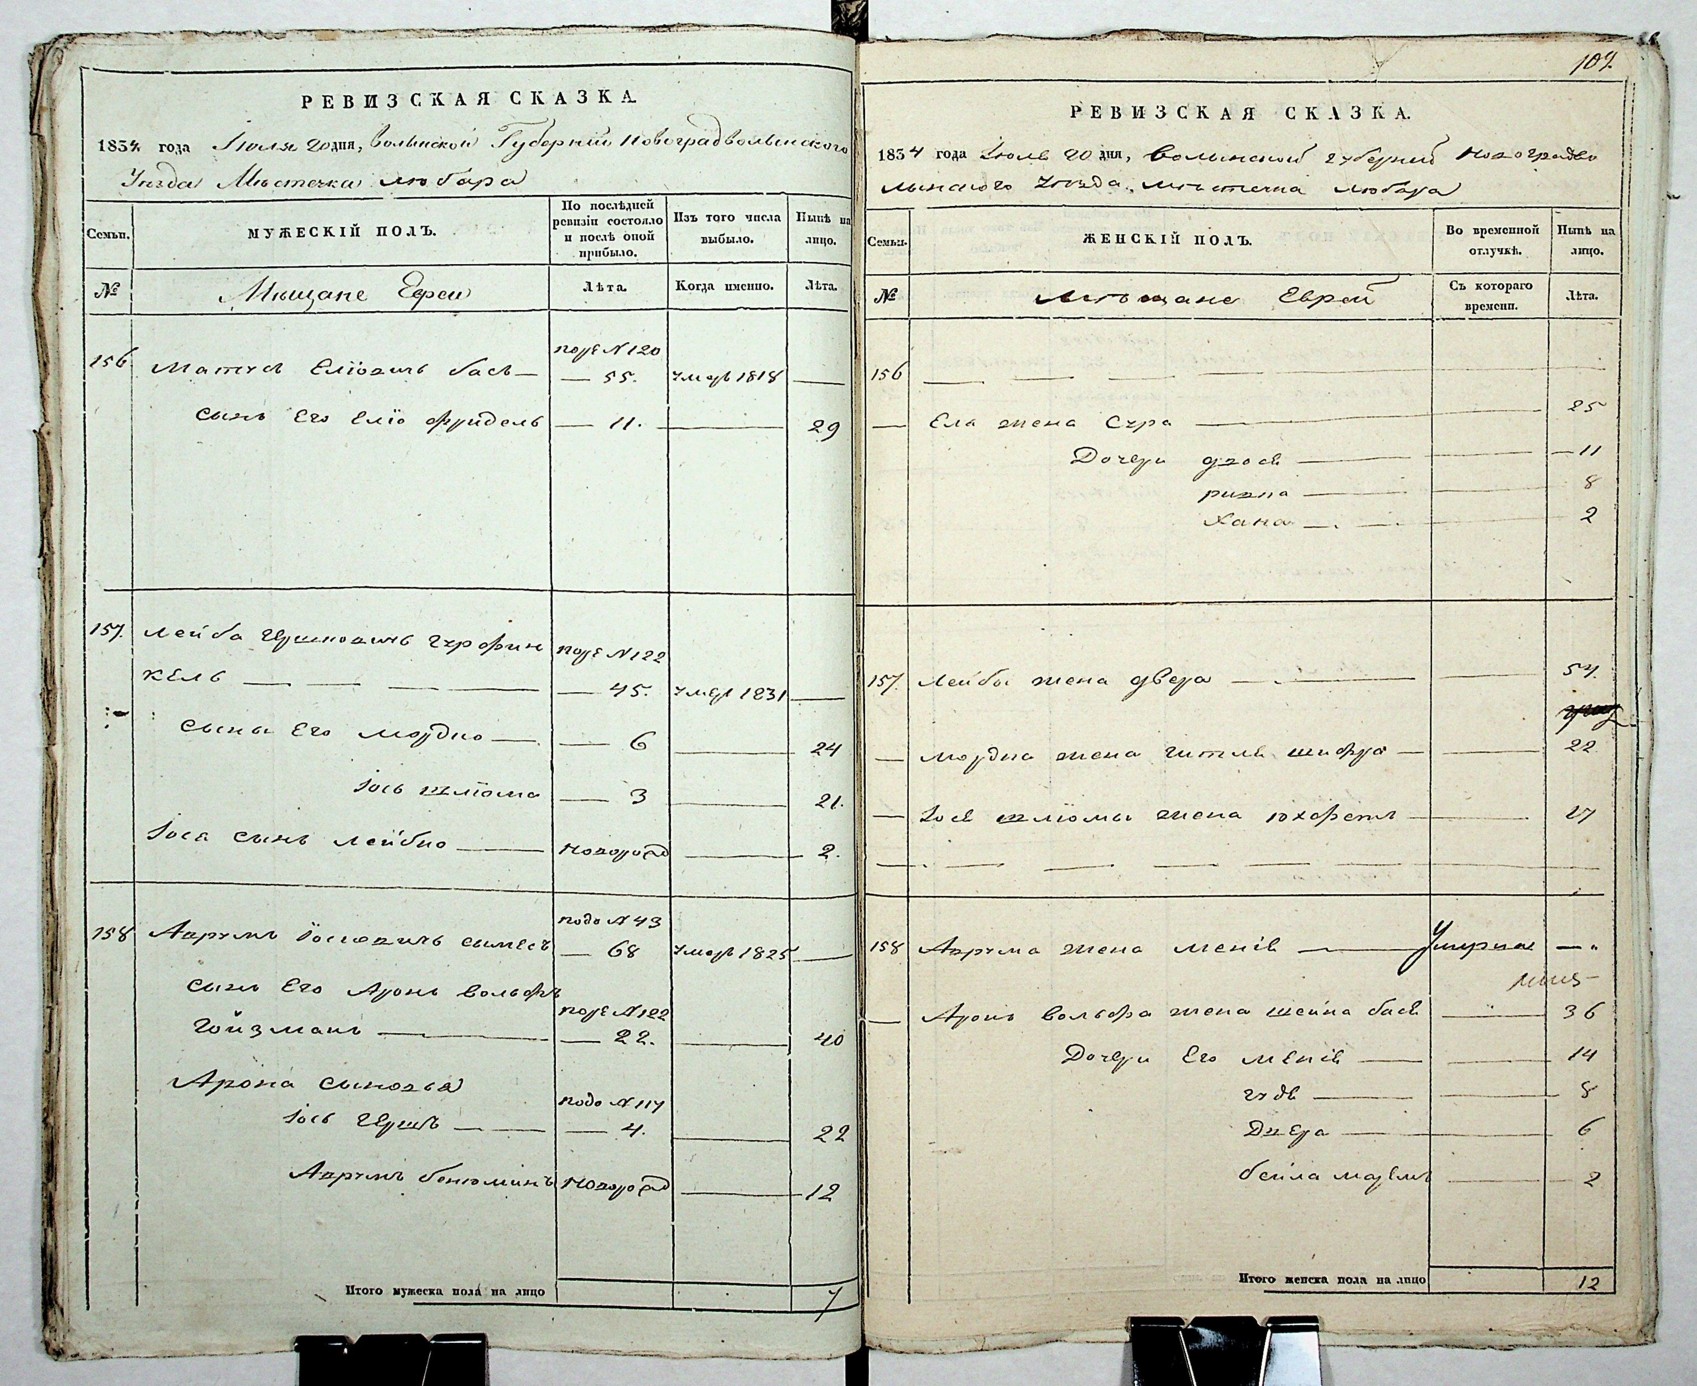 РЕВИЗСКАЯ СКАЗКА.
1834 года Іюля 20 дня, Волынской Губерніи Новоградволынского
Уезда Местечка Любара
Семьи.
МУЖЕСКІЙ ПОЛЪ.
По послѣдней ревизіи состояло и послѣ оной прибыло.
Изъ того числа выбыло.
Нынѣ на лицо.
№
Мещане Евреи
Лѣта.
Когда именно.
Лѣта.
156
подъ N 120
Матусъ Еліовичъ басъ — 55. умеръ 1818 —
сынъ Его Еліо фридель — 11. — 29
157.
Лейба Гершковичъ гурфин
подъ N 122
кель — 45. умеръ 1831 —
сыны Его мордко — 6 — 24
Іось шліома — 3 — 21.
Іося сынъ лейбко — новорож — 2.
158
подо N 43
Аврумъ Іосіовичъ — 68 умеръ 1825 —
сынъ Его Аронъ вольфъ
подъ N 122
гойзманъ — 22. — 40
Арона сыновья
подо N 117
Іось гершъ — 4. — 22
Аврумъ бенюминъ новорож — 12
Итого мужеска пола на лицо 7
107.
РЕВИЗСКАЯ СКАЗКА.
1834 года Іюля 20 дня, Волынской губерніи Новоградво
лынского уезда местечка любара
Семьи.
ЖЕНСКІЙ ПОЛЪ.
Во временной отлучкѣ.
Нынѣ на лицо.
№
Мещане Евреи
Съ котораго времени.
Лѣта.
156
— Ела жена Сура — 25
Дочери — 11
ривка — 8
Хана — 2
157. Лейбы жена двера — 54.
— мордка жена гитля шифра — 22
— Іося шліомы жена — 27
158 Аврума жена меніе — Умерла —
— Аронъ вольфа жена шейна бася — 36
Дочери Его меніе — 14
— 8
Двера — 6
бейла — 2
Итого женска пола на лицо 12